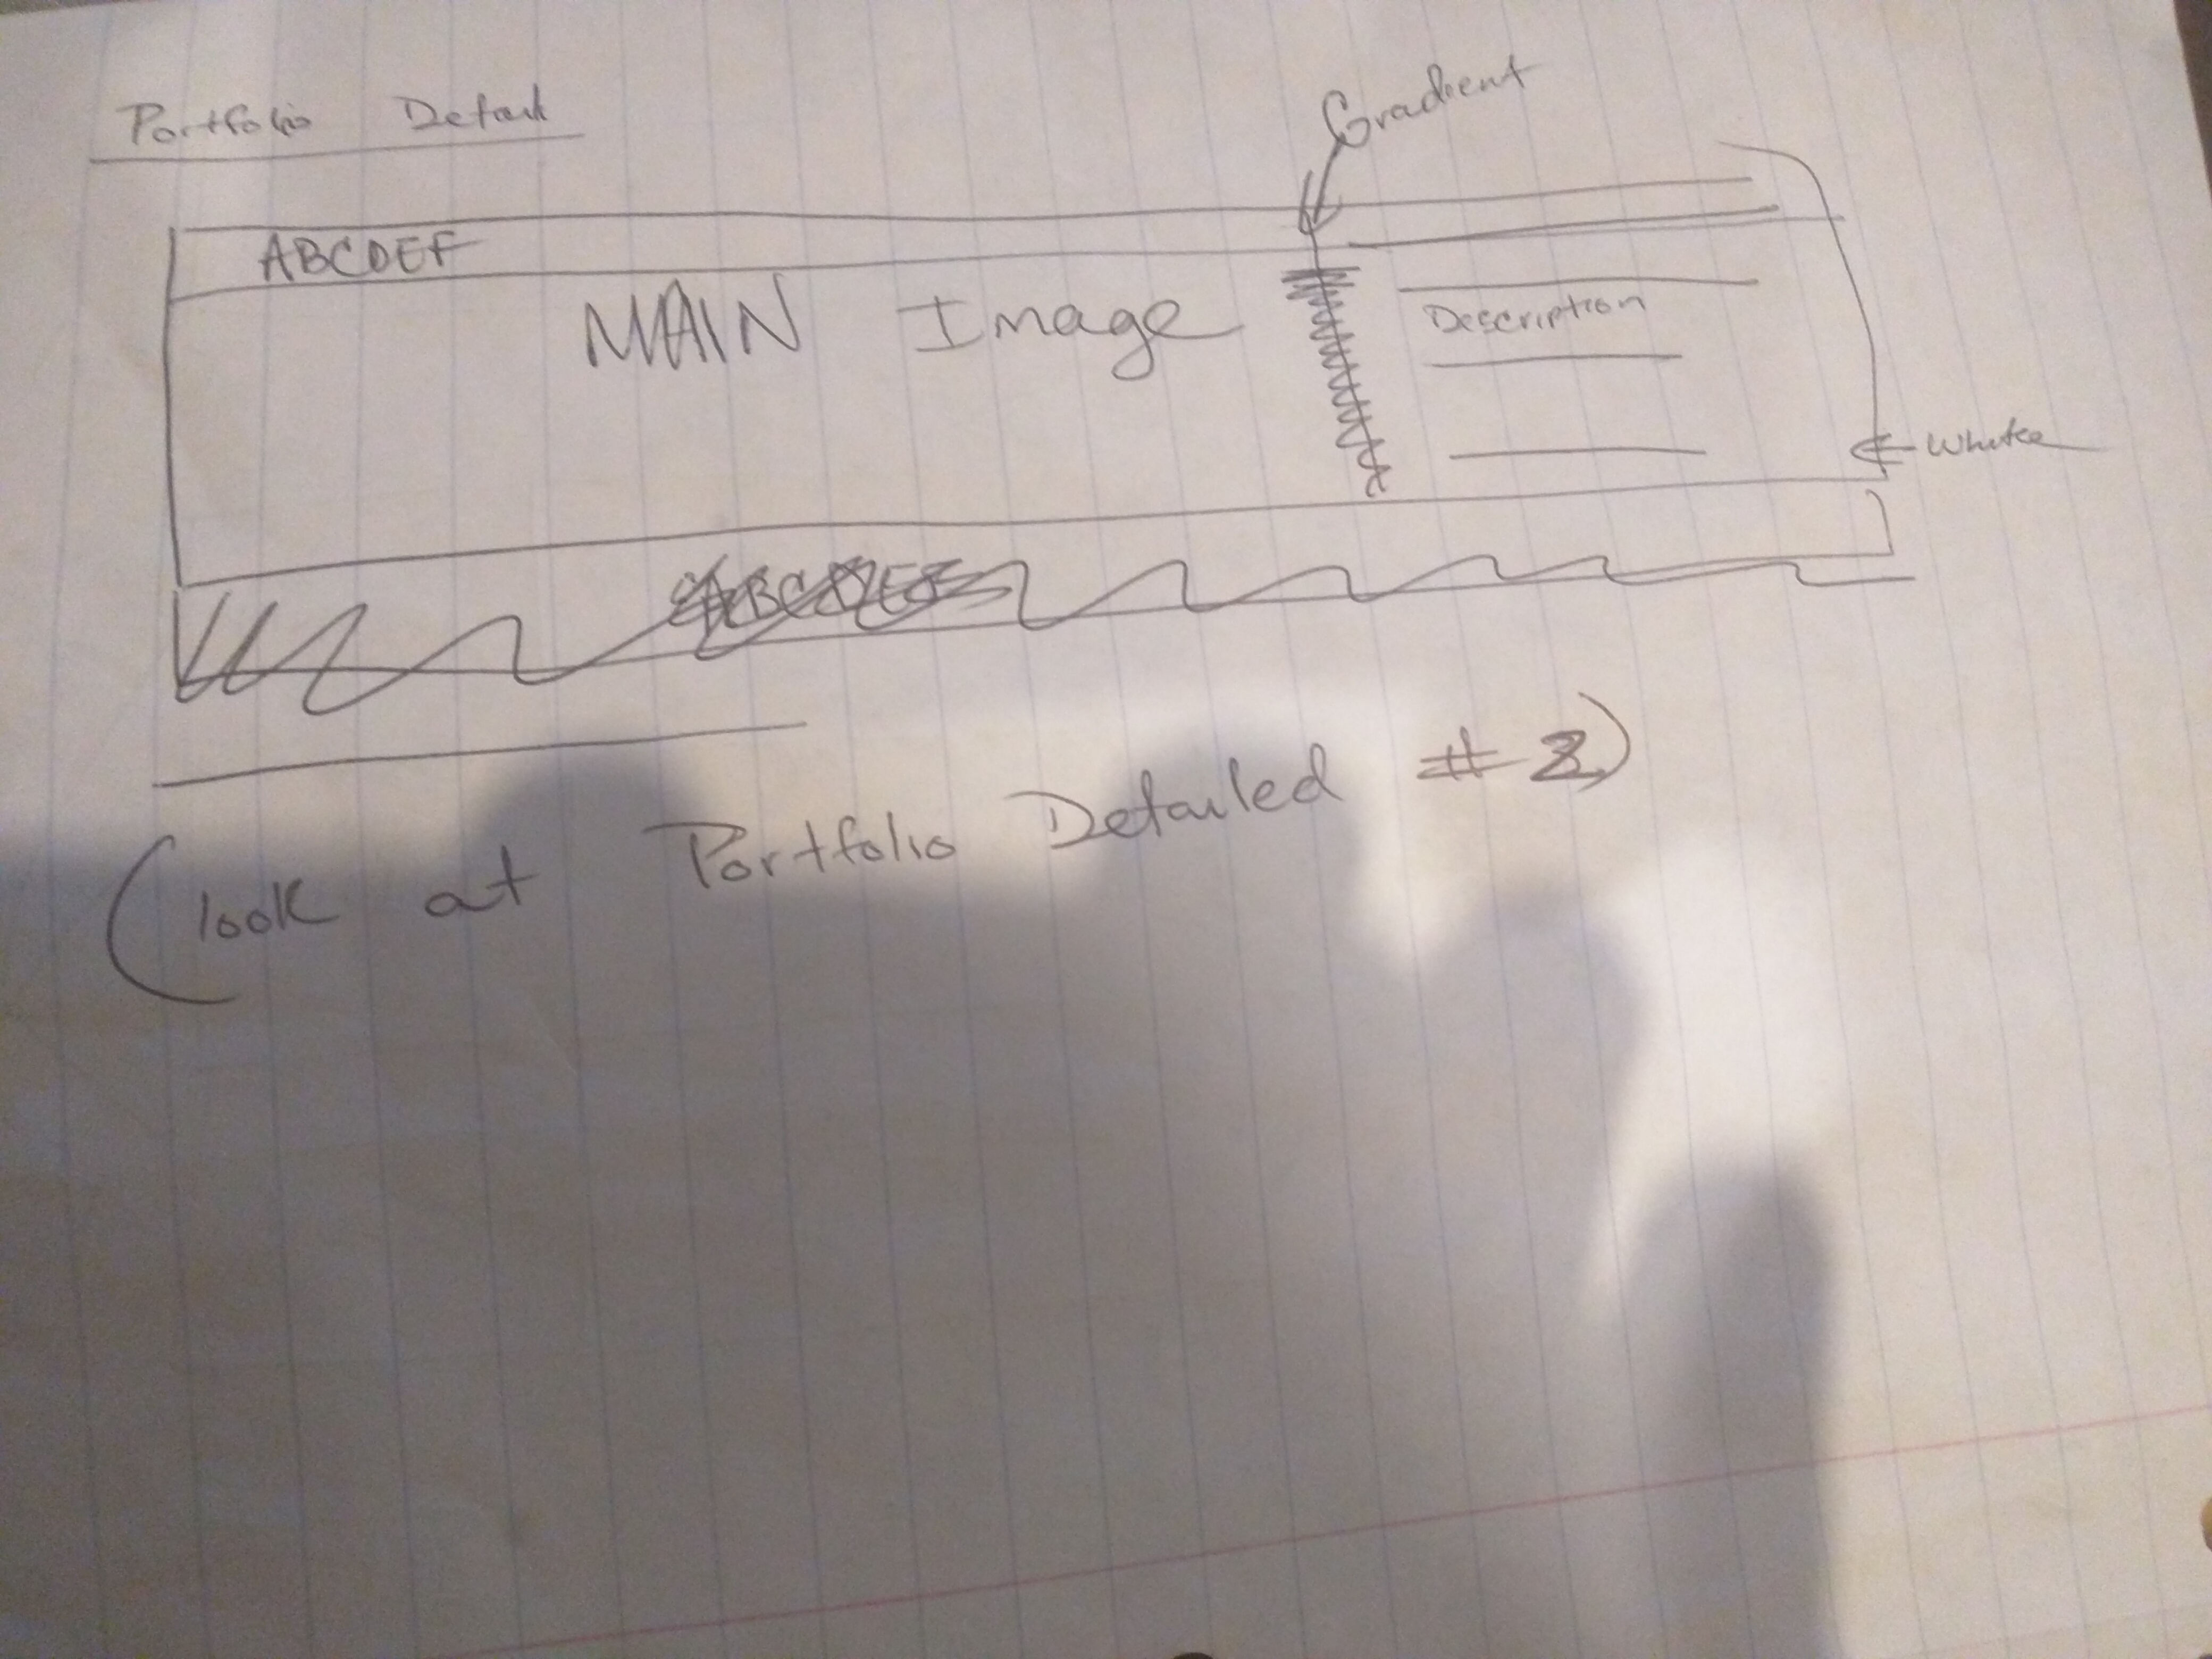 Portfolio Detail
Gradient
ABCDEF
MAIN Image
Description
White
ABCDEF
(look at Portfolio Detailed # 2)